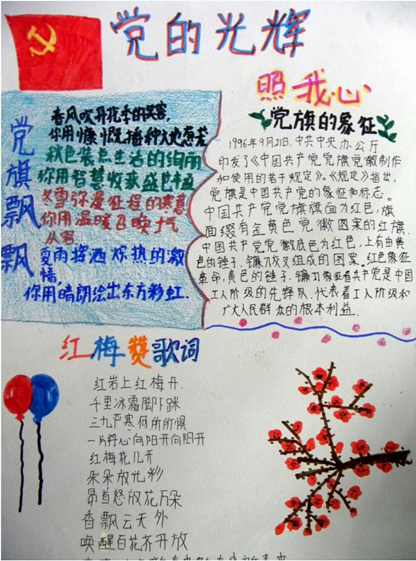 党的光辉
照我心
党旗飘飘
春风吹开花季的笑容,
你用慷慨播种大地
秋色装点生活的绚丽
你用智慧收获盛世
冬雪弥漫征程的寒意
你用温暖召唤士气
夏雨挥洒炽热的激
情
你用晴朗绘出东方彩虹.
党旗的象征
1996年9月21日,中共中央办公厅
印发了《中国共产党党旗党徽制作
和使用的若干规定》。《规定》指出,
党旗是中国共产党的象征和标志。
中国共产党党旗旗面为红色,旗
面缀有金黄色党徽图案的红旗.
中国共产党党徽底色为红色,上有由黄
色的锤子、镰刀交叉组成的图案。红色象征
革命,黄色的锤子、镰刀象征着共产党是中国
工人阶级的先锋队,代表着工人阶级和
广大人民群众的根本利益.
红梅赞歌词
红岩上红梅开
千里冰霜脚下踩
三九严寒何所惧
一片丹心向阳开向阳开
红梅花儿开
朵朵放光彩
昂首怒放花万朵
香飘云天外
唤醒百花齐开放